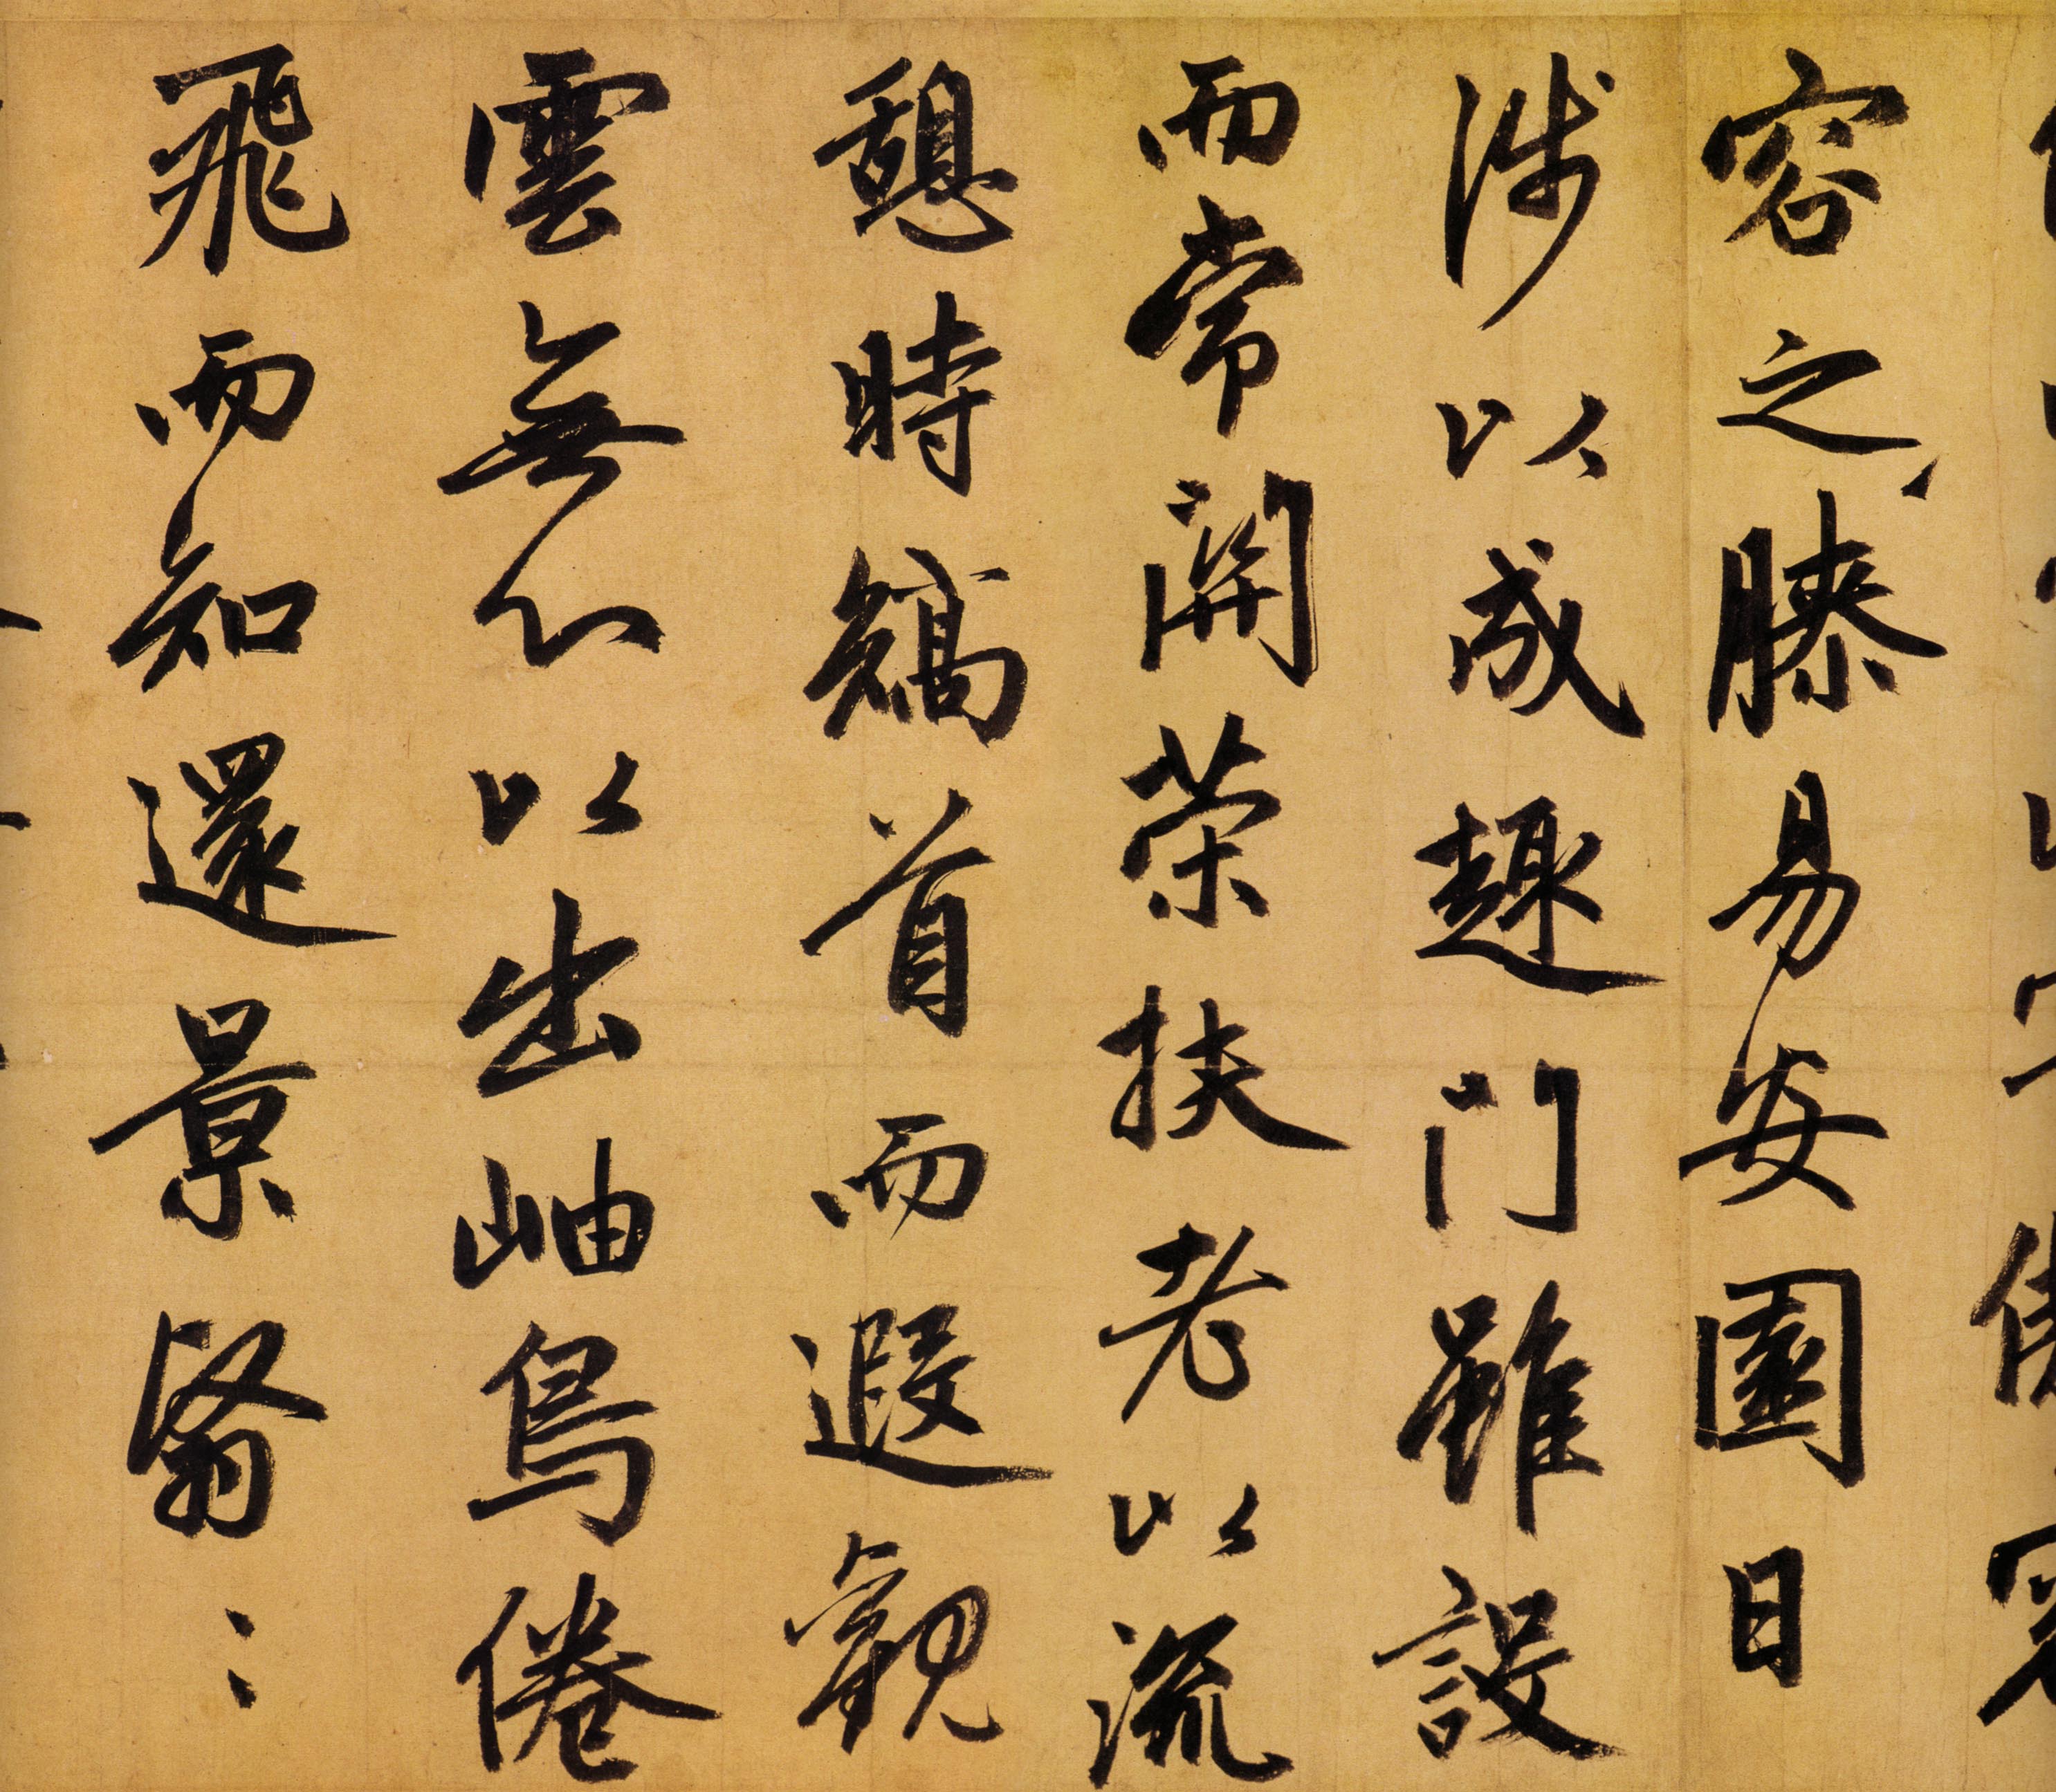 容之膝易安園日
涉以成趣門雖設
而常関策扶老以流
憩時矯首而遐觀
雲無心以出岫鳥倦
飛而知還景翳〻